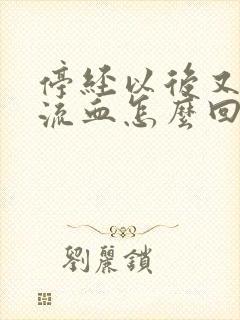 停經以後又
流血怎麼回
劉麗鎖